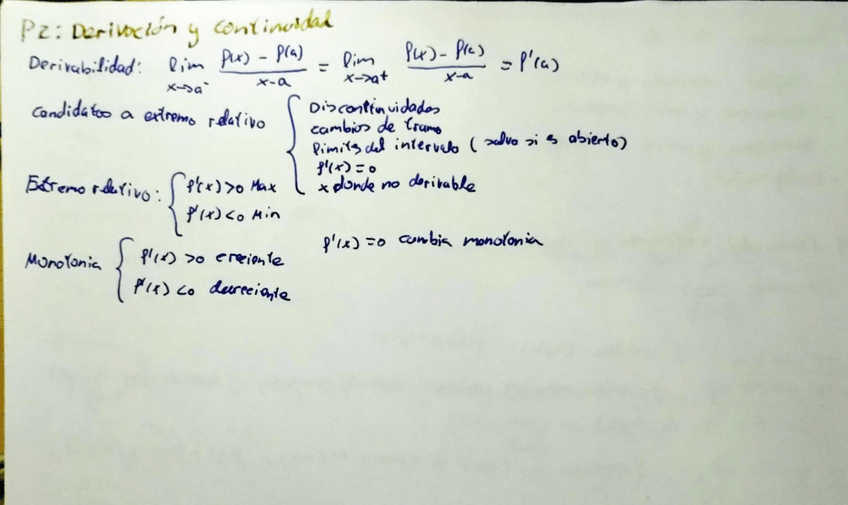 P2: Derivación y continuidad
Derivabilidad: lim x→a⁻ (f(x) - f(a))/(x-a) = lim x→a⁺ (f(x) - f(a))/(x-a) = f'(a)
Candidatos a extremo relativo { Discontinuidades
cambios de tramo
límites del intervalo (salvo si es abierto)
f'(x)=0
x donde no derivable
Extremo relativo: { f'(x)>0 Max
f'(x)<0 Min
f'(x)=0 cambia monotonia
Monotonia { f'(x)>0 creciente
f'(x)<0 decreciente